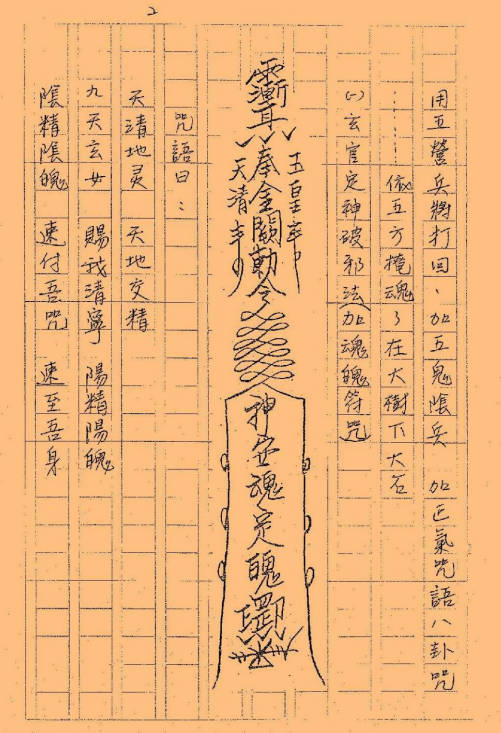 2
用五營兵將打回、加五鬼陰兵 加正氣咒語八卦咒
……依五方掩魂了在大樹下大石
(一)玄官定神破邪法加魂魄符咒
玉皇
奉金闕勅令
天清
神安魂定魄
咒語曰：
天清地灵 天地交精
九天玄女 賜我清寧 陽精陽魄
陰精陰魄 速付吾咒 速至吾身